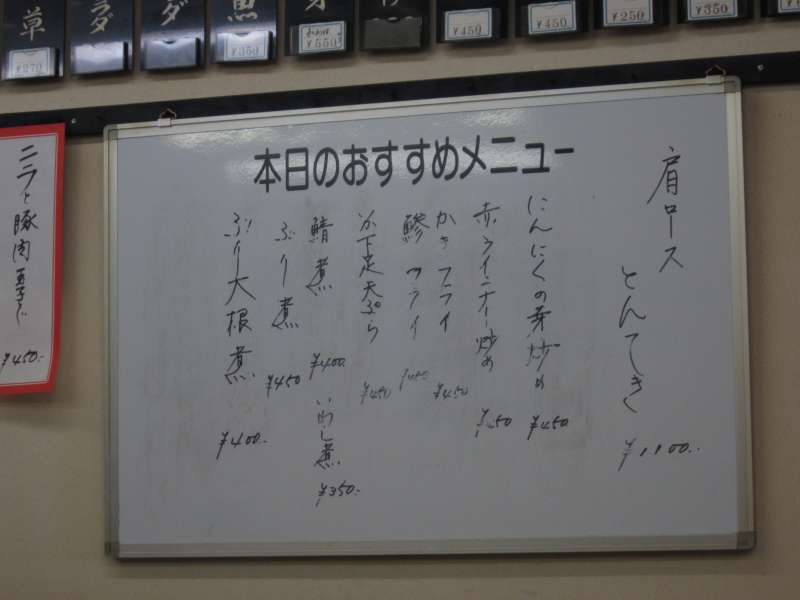 草 ¥270
ラダ
ダ
魚 ¥350
¥550
¥450
¥450
¥250
¥350
本日のおすすめメニュー
肩ロース とんてき ¥1100.
にんにくの芽炒め ¥450
赤ウインナー炒め ¥450
かきフライ ¥450
鯵フライ ¥450
下足天ぷら ¥450
鯖煮 ¥400
いわし煮 ¥350.
ぶり煮 ¥450
ぶり大根煮 ¥400.
ニラと豚肉玉子とじ ¥450.